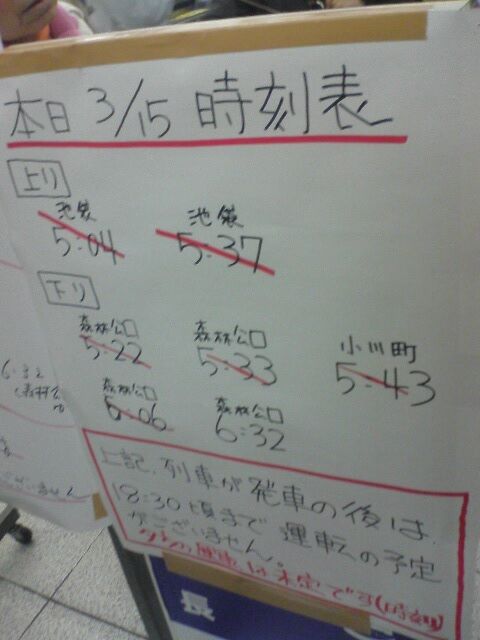 本日 3/15 時刻表
上り
池袋 池袋
5:04 5:37
下り
森林公口 森林公口 小川町
5:22 5:33 5:43
森林公口 森林公口
6:06 6:32
上記、列車が発車の後は
18:30頃まで運転の予定
がございません。
は未定です(時刻)
6:32
ございません
長